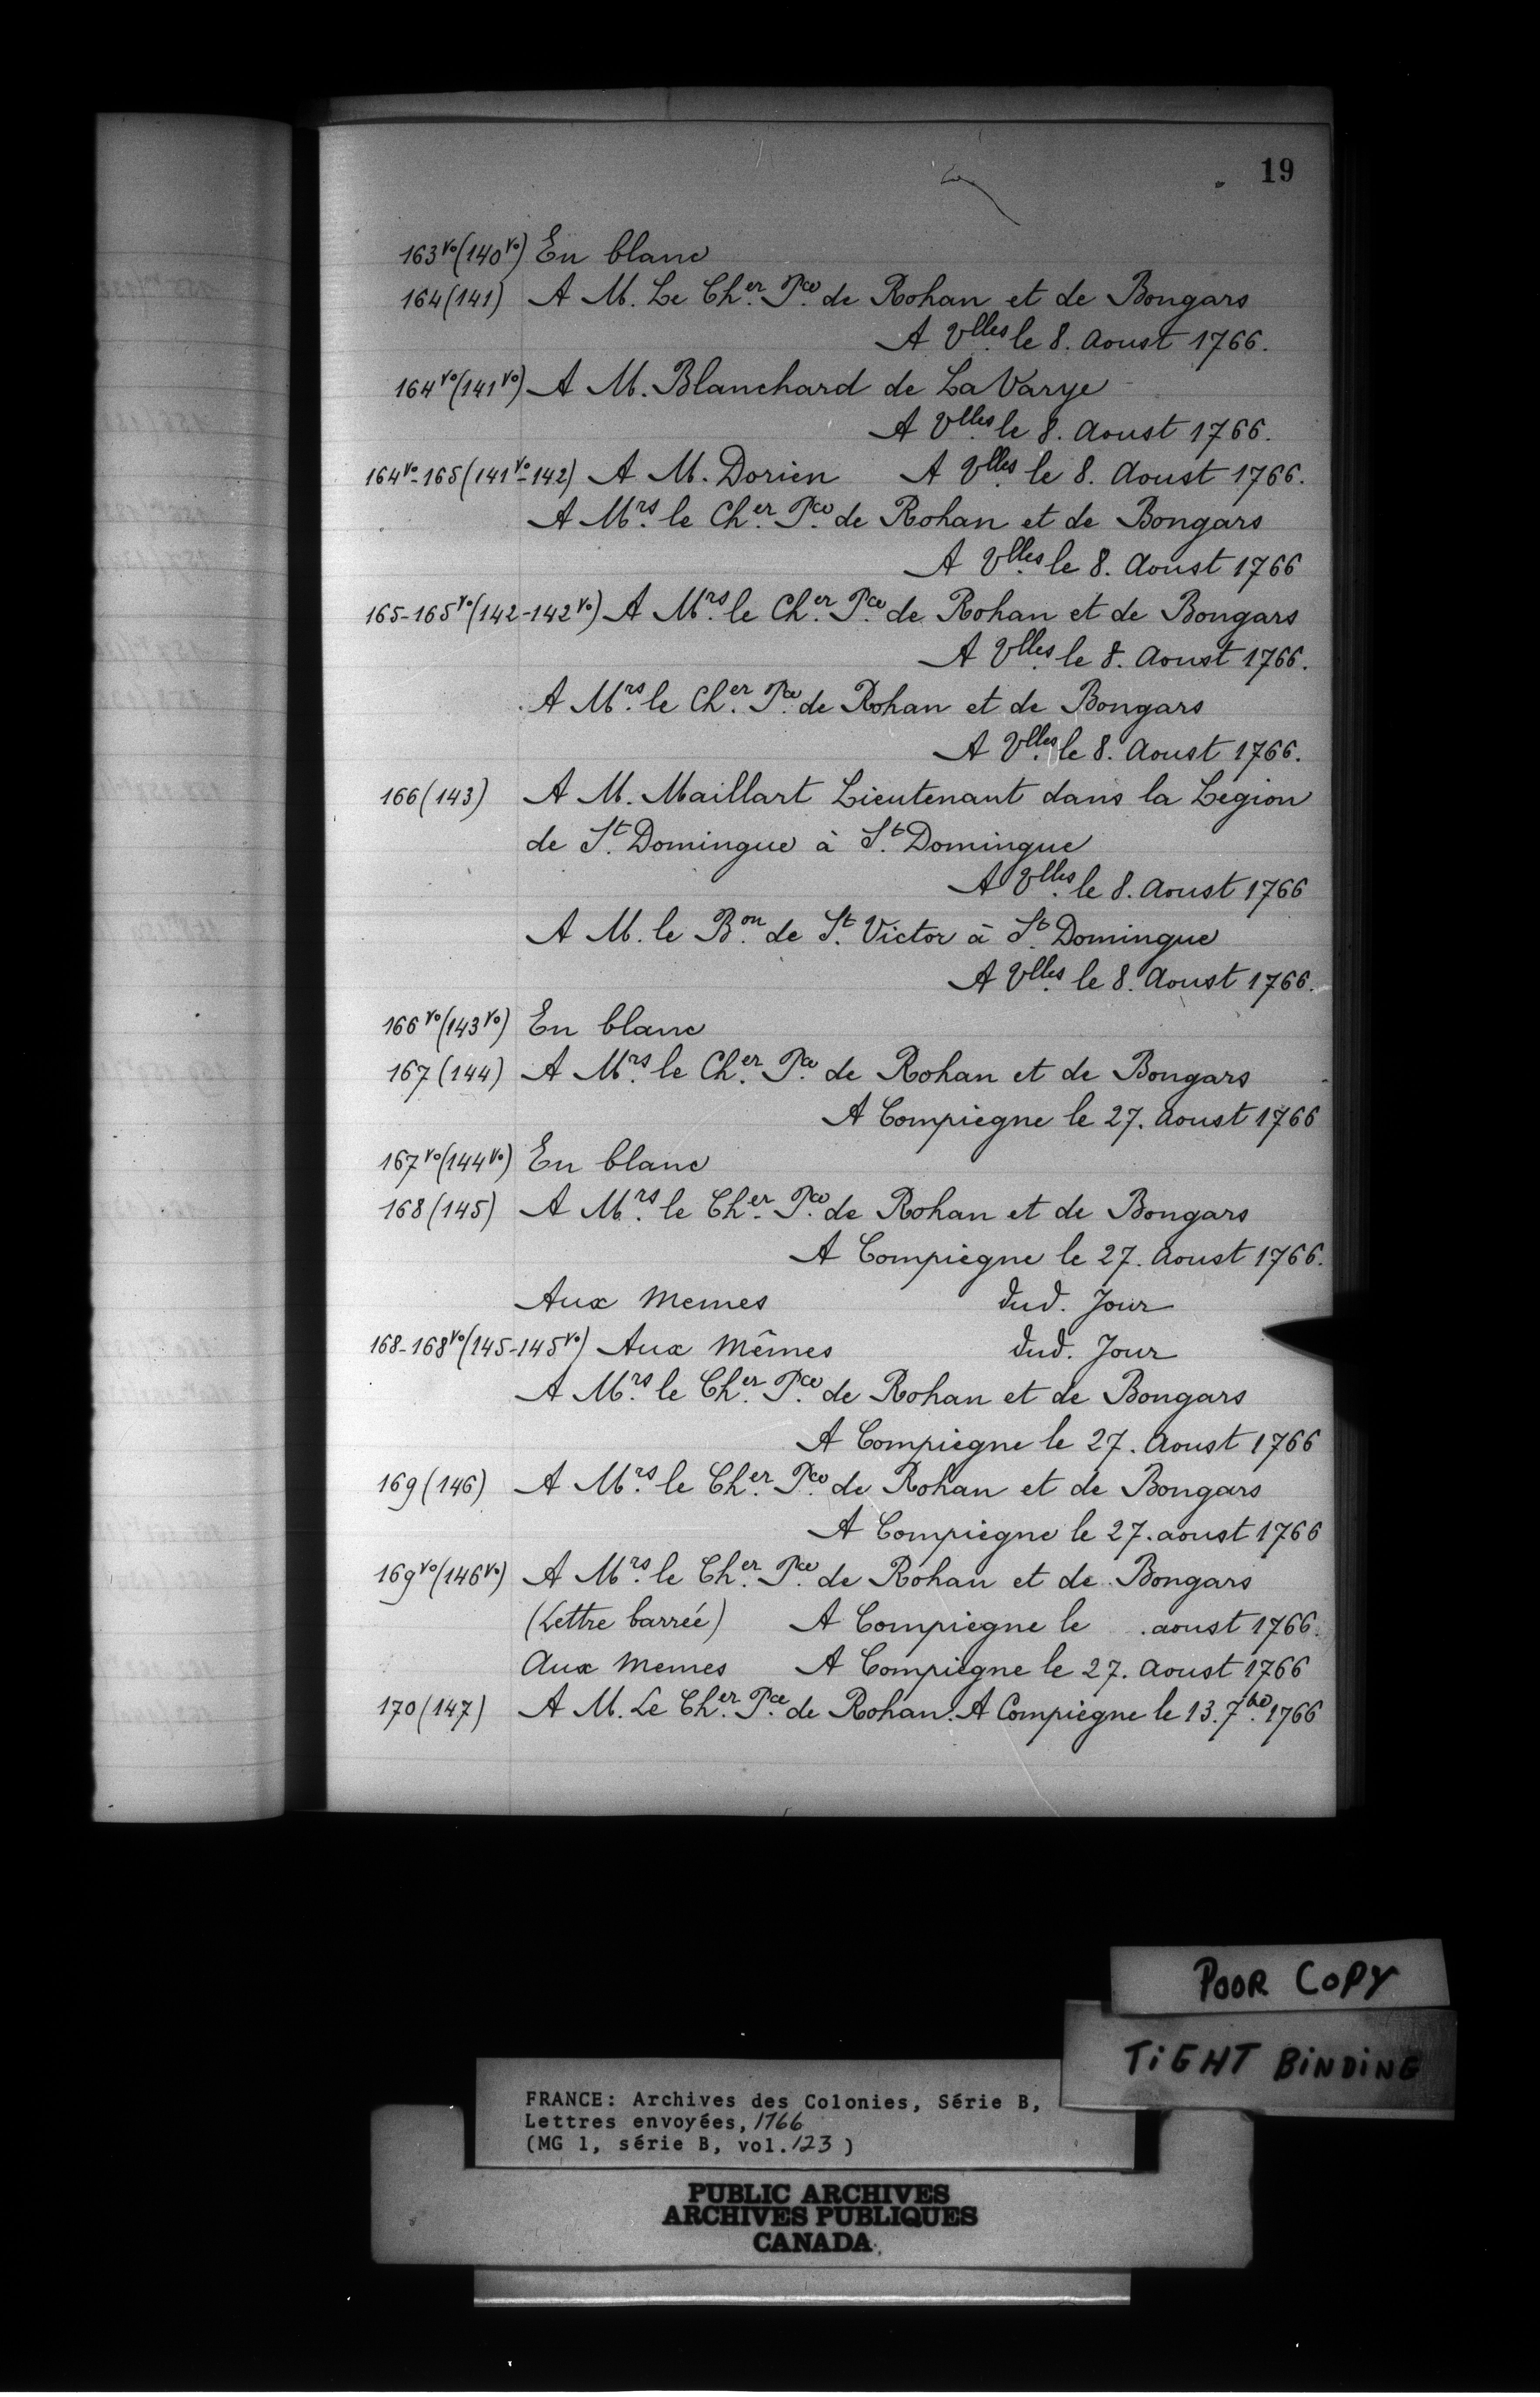 19
163vo(140vo) En blanc
164(141) A M. Le Cher. Pce. de Rohan et de Bongars
A Vlles. le 8. Aoust 1766.
164vo(141vo) A M. Blanchard de La Varye
A Vlles. le 8. Aoust 1766.
164vo-165(141vo-142) A M. Dorien A Vlles. le 8. Aoust 1766.
A Mrs. le Cher. Pce. de Rohan et de Bongars
A Vlles. le 8. Aoust 1766
165-165vo(142-142vo) A Mrs. le Cher. Pce. de Rohan et de Bongars
A Vlles. le 8. Aoust 1766.
A Mrs. le Cher. Pce. de Rohan et de Bongars
A Vlles. le 8. Aoust 1766.
166(143) A M. Maillart Lieutenant dans la Légion
de St. Domingue à St. Domingue
A Vlles. le 8. Aoust 1766
A M. le Bon. de St. Victor à St. Domingue
A Vlles. le 8. Aoust 1766.
166vo(143vo) En blanc
167(144) A Mrs. le Cher. Pce. de Rohan et de Bongars
A Compiègne le 27. Aoust 1766
167vo(144vo) En blanc
168(145) A Mrs. le Cher. Pce. de Rohan et de Bongars
A Compiègne le 27. Aoust 1766.
Aux Memes dud. Jour
168-168vo(145-145vo) Aux Mêmes dud. Jour
A Mrs. le Cher. Pce. de Rohan et de Bongars
A Compiègne le 27. Aoust 1766
169(146) A Mrs. le Cher. Pce. de Rohan et de Bongars
A Compiègne le 27. aoust 1766
169vo(146vo) A Mrs. le Cher. Pce. de Rohan et de Bongars
(Lettre barrée) A Compiègne le . aoust 1766.
Aux Memes A Compiègne le 27. Aoust 1766
170(147) A M. Le Cher. Pce. de Rohan. A Compiègne le 13. 7bre. 1766
POOR COPY
TiGHT BiNDiNG
FRANCE: Archives des Colonies, Série B,
Lettres envoyées, 1766
(MG 1, série B, vol. 123)
PUBLIC ARCHIVES
ARCHIVES PUBLIQUES
CANADA